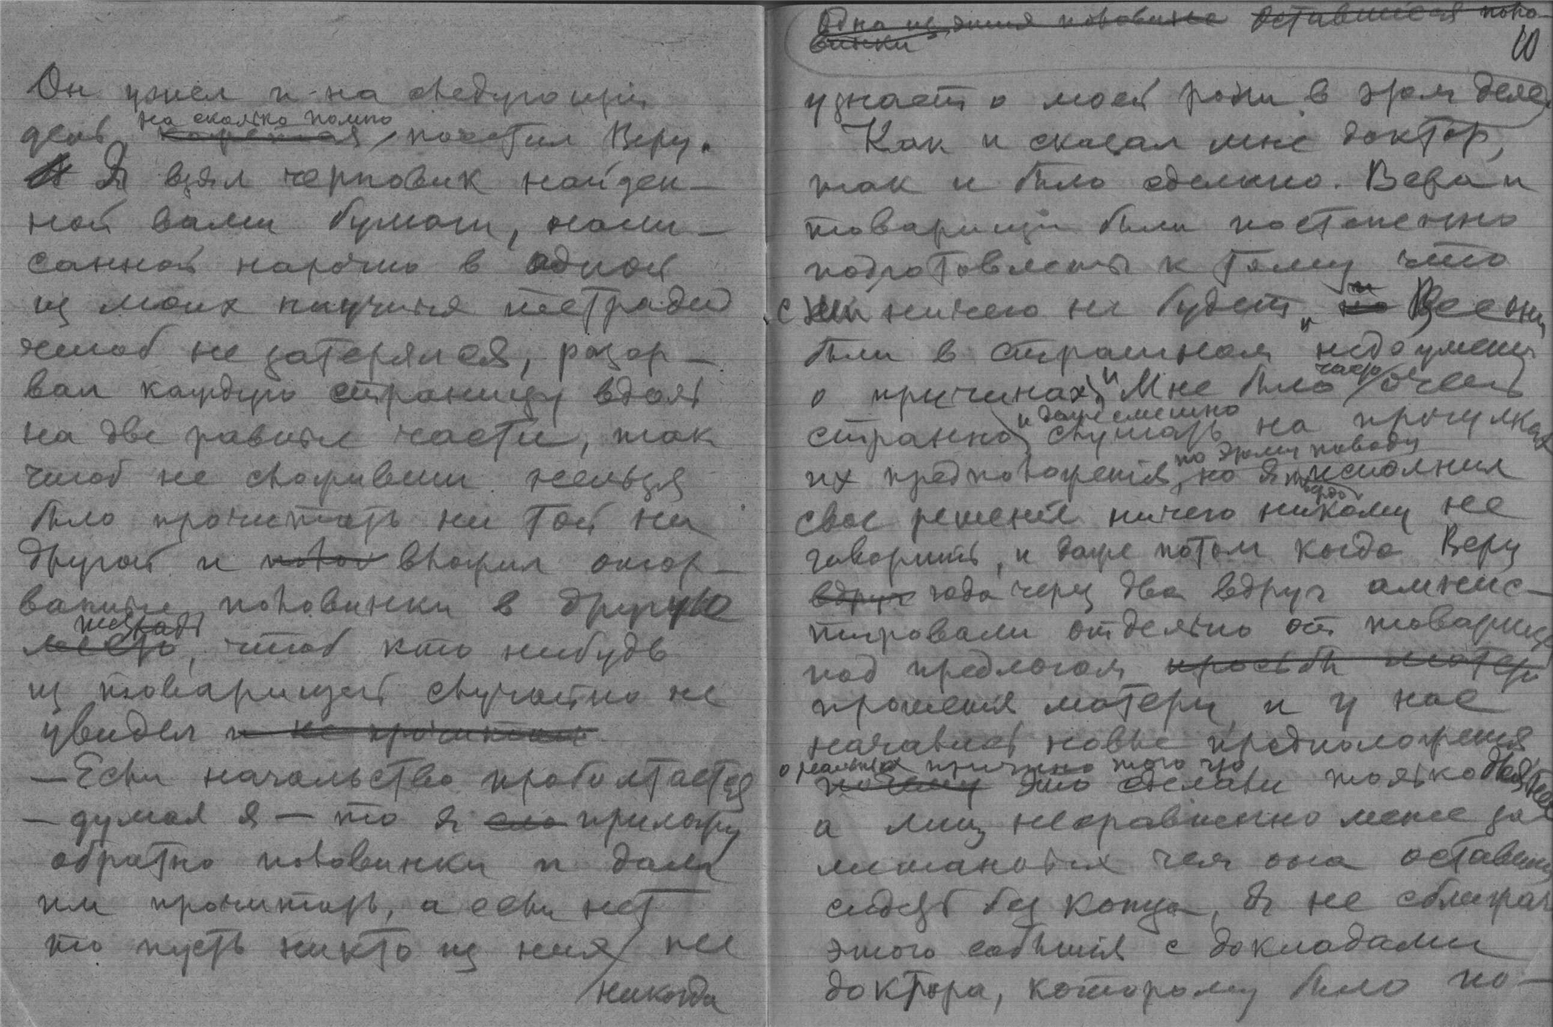 Он ушел и на следующий
на сколько помню
день посетил Веру.
Я взял черновик найден-
ной вами бумаги, напи-
санной нарочно в одной
из моих научных тетрадей
чтоб не затерялся, разор-
вал каждую страницу вдоль
на две равные части, так
чтоб не сложивши нельзя
было прочитать ни той ни
другой и вложил отор-
ванные половинки в другую
тетрадь
, чтоб кто нибудь
из товарищей случайно не
увидел и не прочитал
— Если начальство проболтается
— думал я — то я приложу
обратно половинки и дам
им прочитать, а если нет
то пусть никто из них не
никогда
Одна из этих половинок оставшiеся поло-
винки
10
узнает о моей роли в этом деле.
Как и сказал мне доктор,
так и было сделано. Вера и
товарищи были постепенно
подготовлены к тому что
с ним ничего не будет, и Все они
были в страшном недоумении
о причинах, и Мне было часто очень
странно и даже смешно слушать на прогулках
их предположения по этому поводу, но я исполнил
твердо
свое решенiе ничего никому не
говорить, и даже потом когда Веру
вдруг года через два вдруг амнис-
тировали отдельно от товарищей
под предлогом просьбы матери
прошения матери, и у нас
начались новые предположения
о реальных причинах того что
почему это сделали только для нея
а лиц несравненно менее за-
мешанных чем она оставили
сидеть без конца, я не сближал
этого события с докладами
доктора, которому было по-